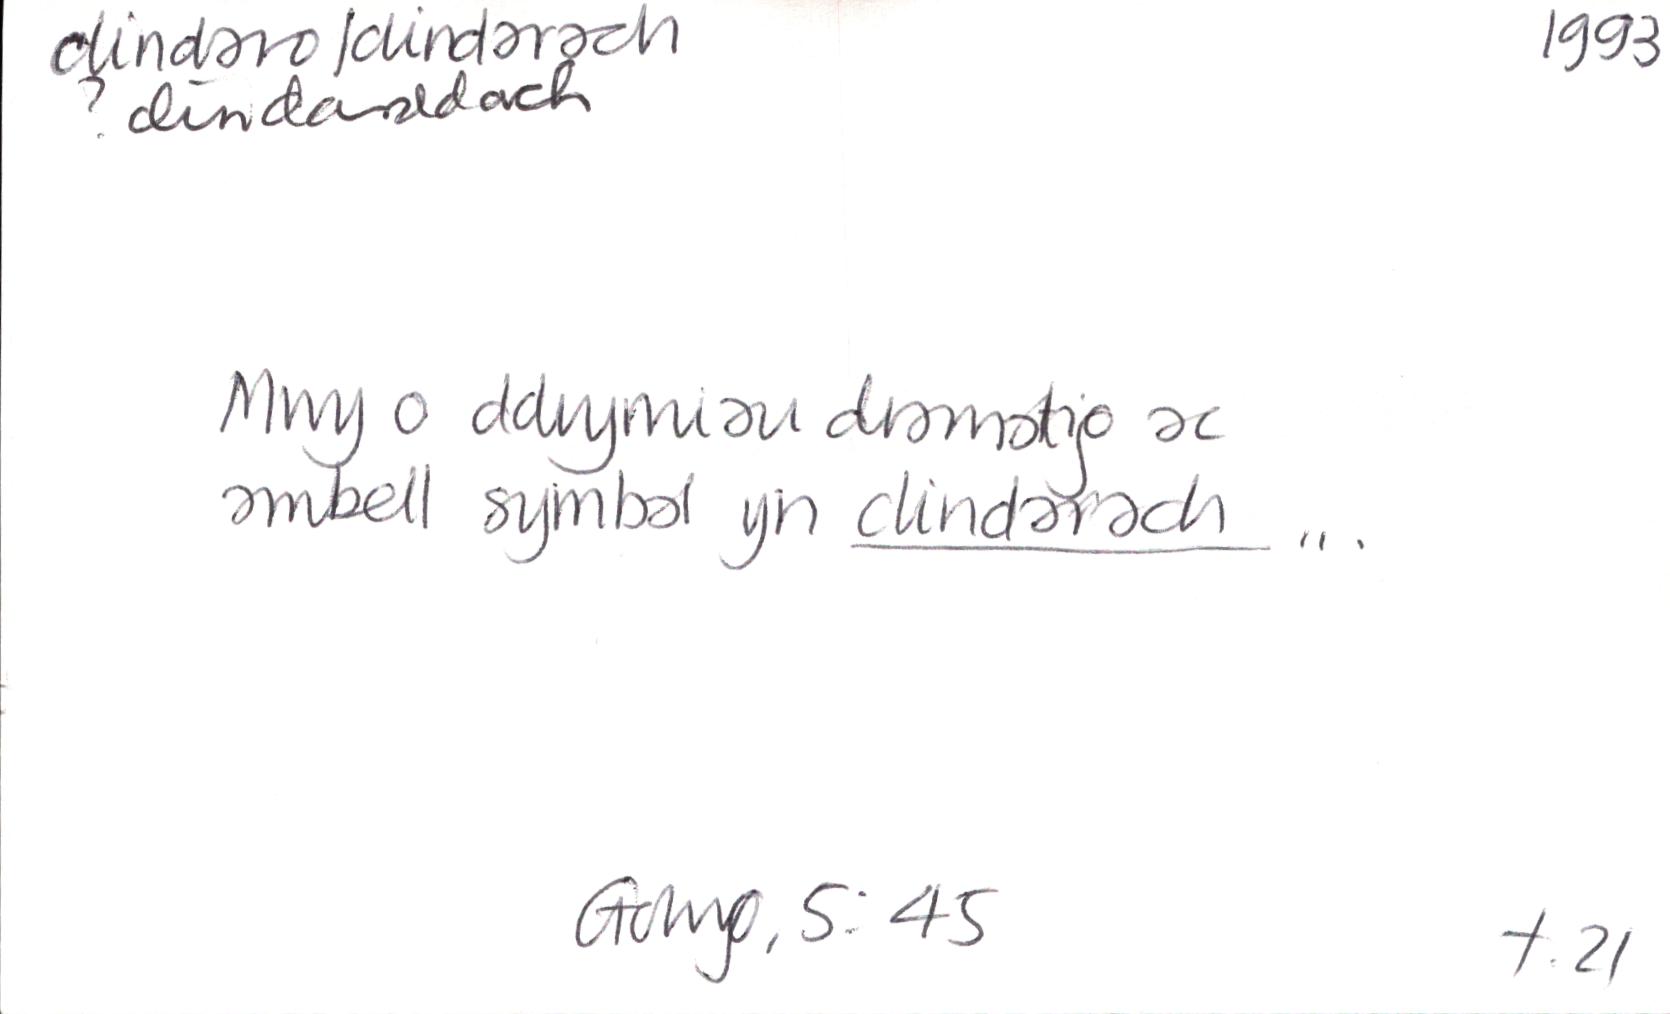 clindaro/clindarach 1993
? clindarddach
Mwy o ddrymiau dramatig ac
ambell symbal yn clindarach ...
Golwg, 5: 45
t. 21